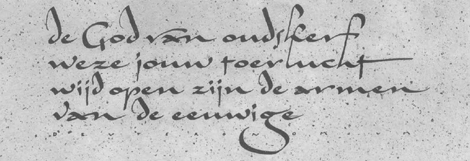 de God van oudsher
weze jouw toevlucht
wijd open zijn de armen
van de eeuwige